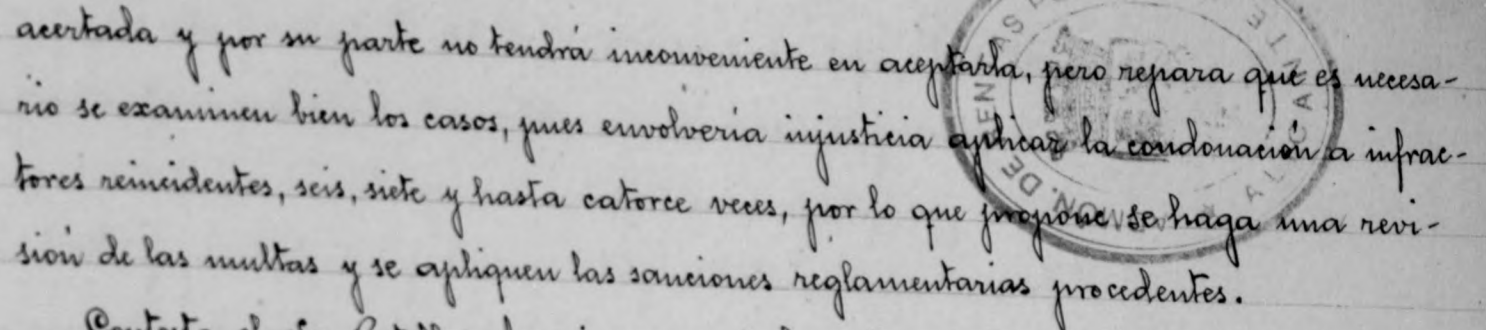 acertada y por su parte no tendrá inconveniente en aceptarla, pero repara que es necesa-
rio se examinen bien los casos, pues envolvería injusticia aplicar la condonación a infrac-
tores reincidentes, seis, siete y hasta catorce veces, por lo que propone se haga una revi-
sión de las multas y se apliquen las sanciones reglamentarias procedentes.
Contesta el Sr.